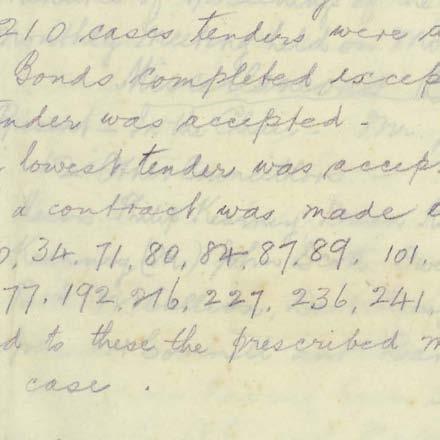 210 cases tenders were a
Bonds completed excep
nder was accepted -
lowest tender was accep
a contract was made
0, 34. 71, 80, 84, 87. 89. 101.
77. 192, 216, 227. 236, 241.
d to these the prescribed m
case .